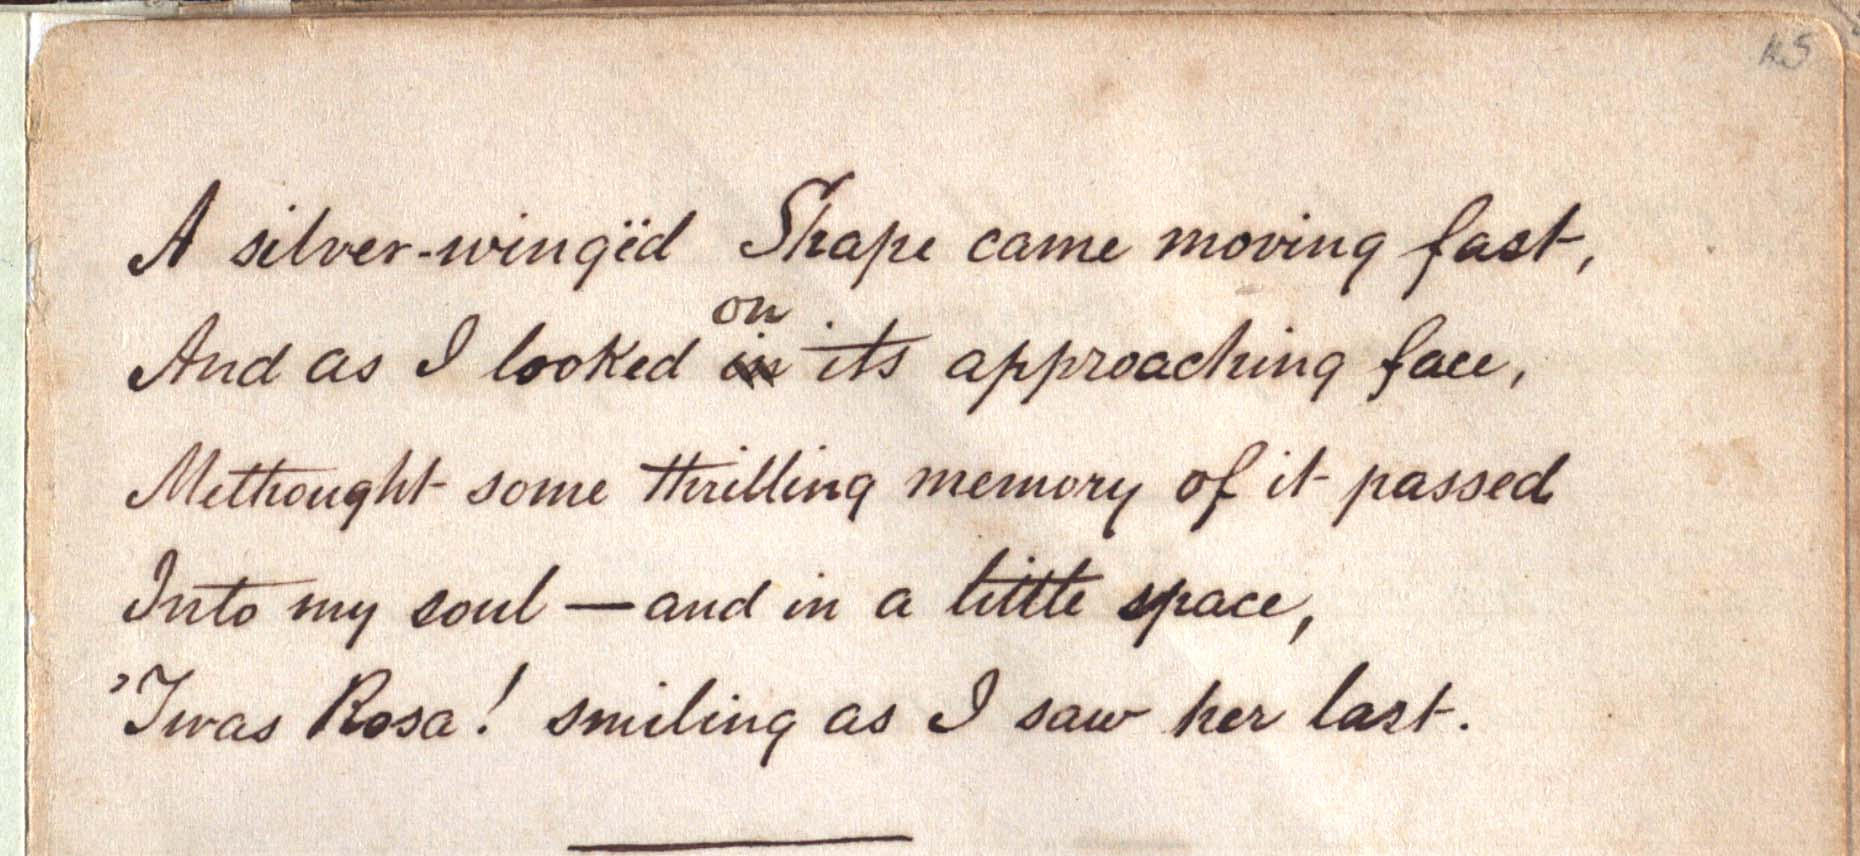 A silver-wingëd Shape came moving fast,
on
And as I looked in its approaching face,
Methought some thrilling memory of it passed
Into my soul — and in a little space,
'Twas Rosa! smiling as I saw her last.